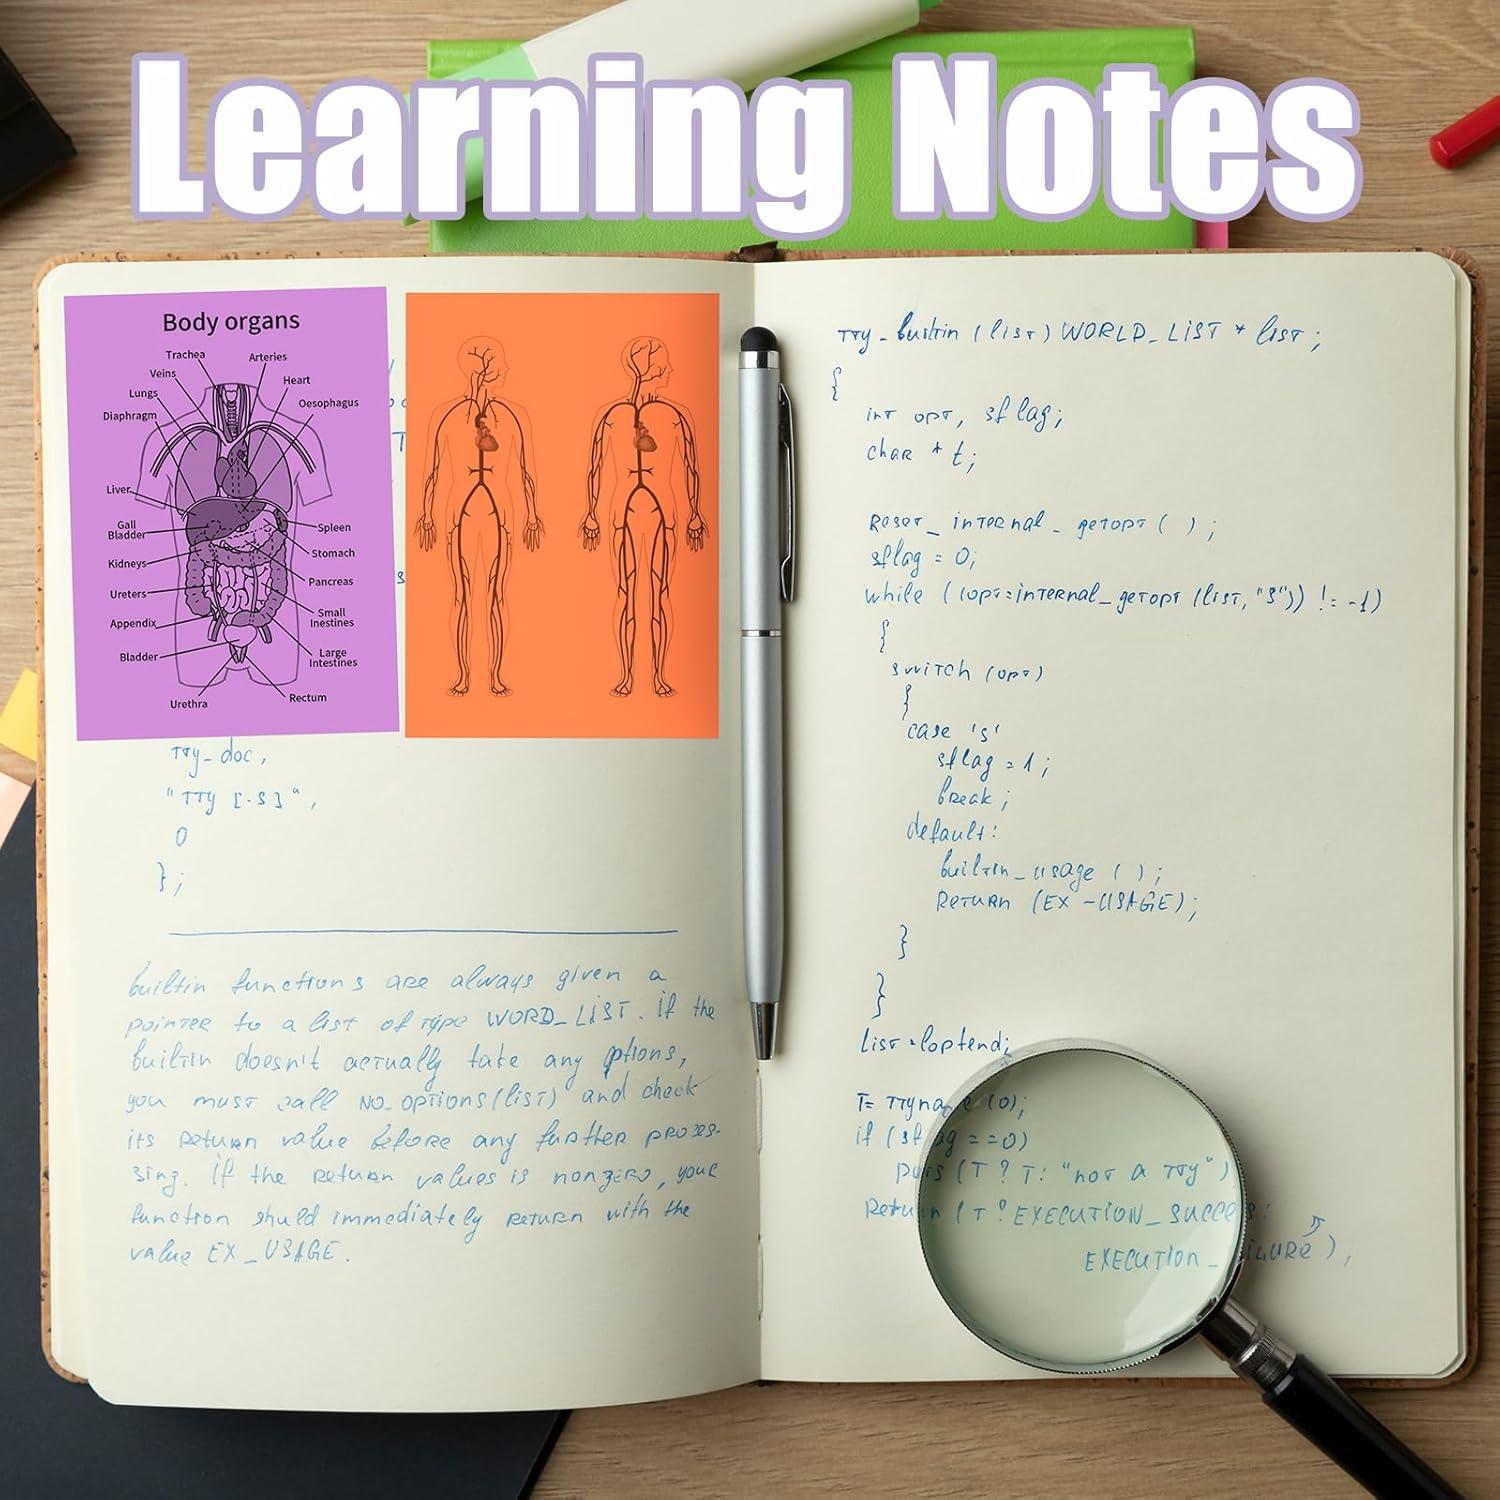 Learning Notes
Body organs
Trachea
Arteries
Veins
Heart
Lungs
Oesophagus
Diaphragm
Liver
Gall
Bladder
Spleen
Kidneys
Stomach
Ureters
Pancreas
Appendix
Small
Inestines
Bladder
Large
Intestines
Urethra
Rectum
tty_doc,
"TTY [-S]",
0
};
builtin functions are always given a
pointer to a list of type WORD_LIST. if the
builtin doesn't actually take any options,
you must call no_options(list) and check
its return value before any further prozes-
sing. if the return values is nonzero, your
function shuld immediately return with the
value EX_USAGE.
tty_builtin (list) WORLD_LIST * list;
{
int opt, sflag;
char * t;
Reset_internal_getopt ( );
sflag = 0;
while ((opt=internal_getopt (list, "S")) != -1)
{
switch (opt)
{
case 's'
sflag = 1;
break;
default:
builtin_usage ( );
Return (EX -USAGE);
}
}
list = loptend;
T= ttyname (0);
if (sflag ==0)
puts (T ? T: "not a tty")
Return (T ? EXECUTION_SUCCESS:
EXECUTION_FAILURE),